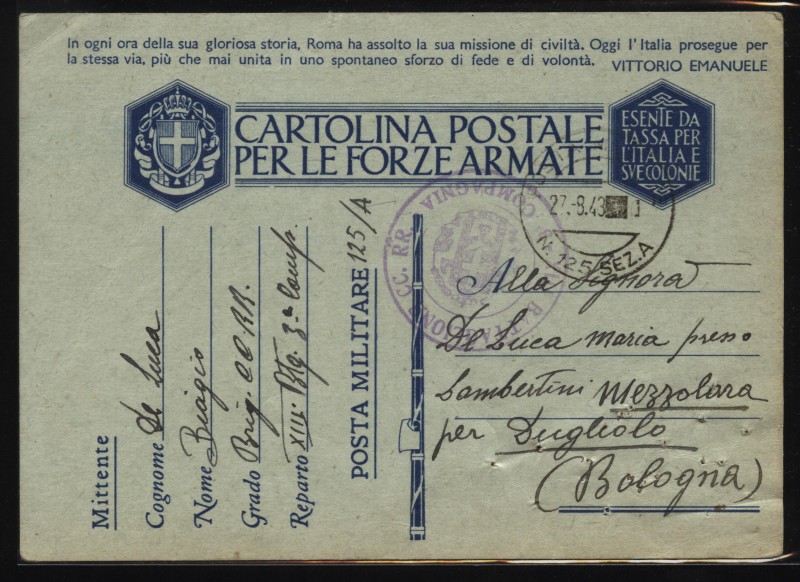 In ogni ora della sua gloriosa storia, Roma ha assolto la sua missione di civiltà. Oggi l'Italia prosegue per
la stessa via, più che mai unita in uno spontaneo sforzo di fede e di volontà. VITTORIO EMANUELE
CARTOLINA POSTALE
PER LE FORZE ARMATE
ESENTE DA
TASSA PER
L'ITALIA E
SVE COLONIE
27.-8.43
N. 125 SEZ.A
COMPAGNIA
BATTAGLIONE CC. RR.
Mittente
Cognome De Luca
Nome Biagio
Grado Brig. CC RR.
Reparto XIII Btg. 3ª Comp.
POSTA MILITARE 125/A
Alla Signora
De Luca Maria presso
Lambertini Mezzolara
per Dugliolo
(Bologna)